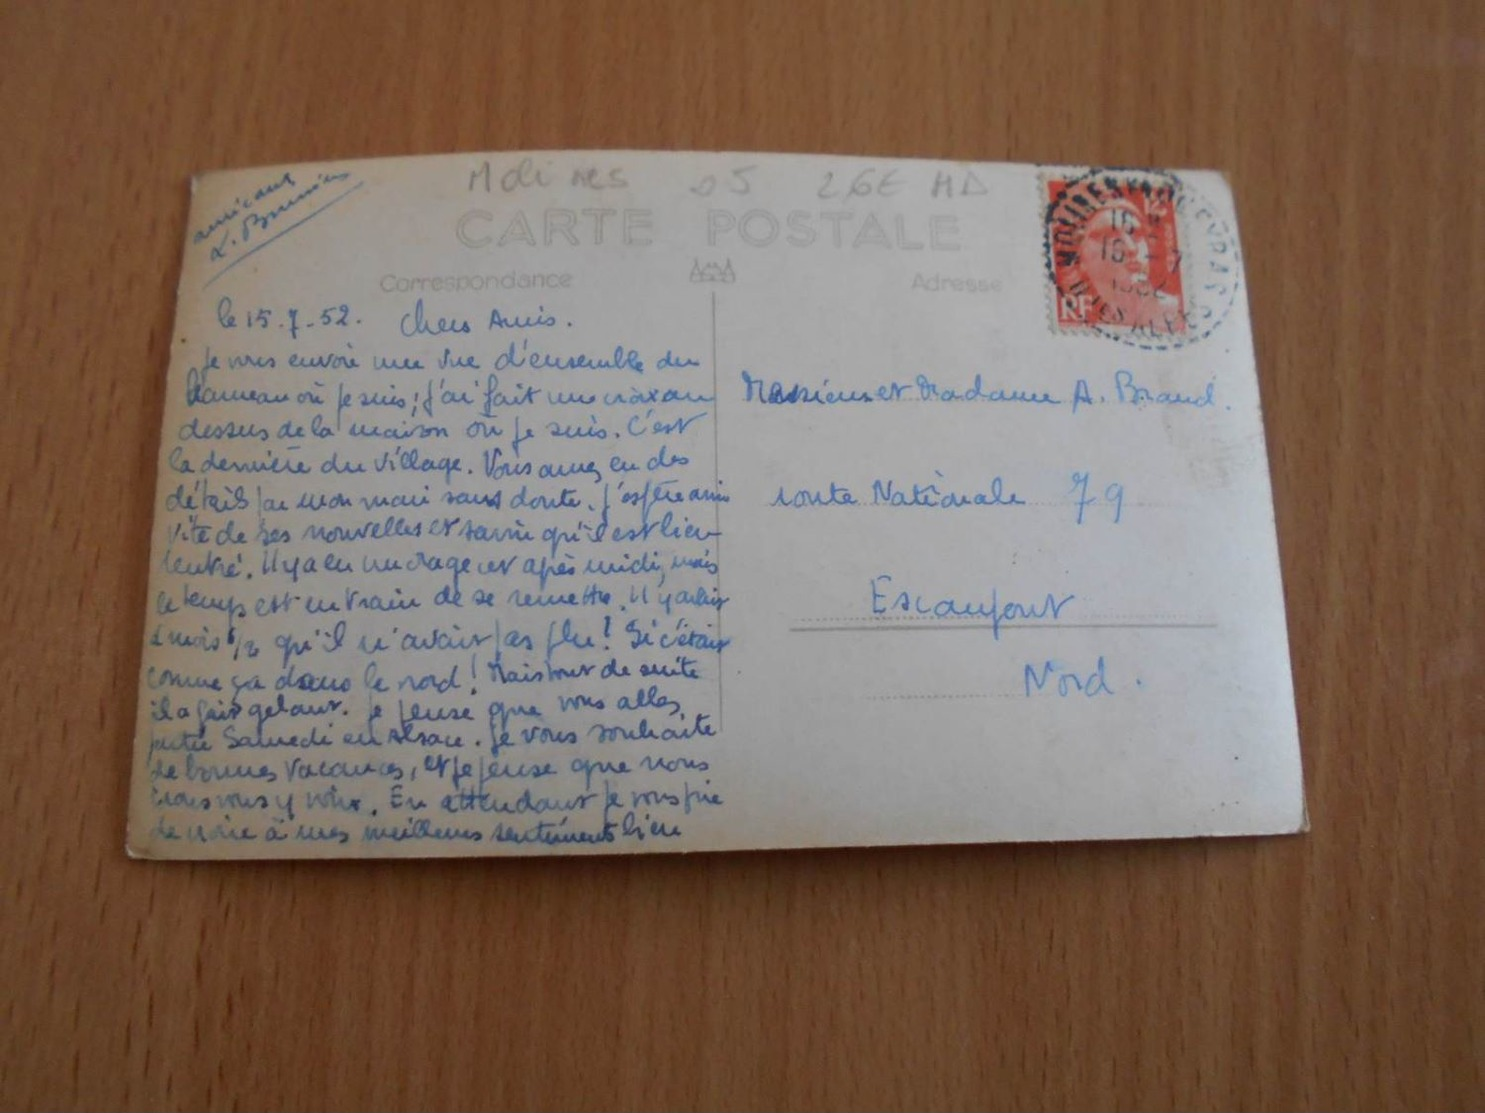 Molines 05 2,6E HD
CARTE POSTALE
Correspondance
Adresse
amicaux
L.
le 15.7.52. Chers Amis.
Je vous envoie une vue d'ensemble du
hameau où je suis; j'ai fait une croix au
dessus de la maison où je suis. C'est
la dernière du village. Vous aurez eu des
détails par mon mari sans doute. J'espère avoir
vite de ses nouvelles et savoir qu'il est bien
rentré. Il y a eu un orage cet après midi, mais
le temps est en train de se remettre. Il y avait
2 mois 1/2 qu'il n'avait pas plu! Si c'était
comme ça dans le nord! Mais tout de suite
il a fait gelant. Je pense que vous allez
partir Samedi en Alsace. Je vous souhaite
de bonnes vacances, et je pense que nous
irons vous y voir. En attendant je vous prie
de croire à mes meilleurs sentiments bien
Monsieur et Madame A. Braud.
route Nationale 79
Escaupont
Nord.
MOLINES EN QUEYRAS
16
16 - 7
1952
HTES ALPES
RF